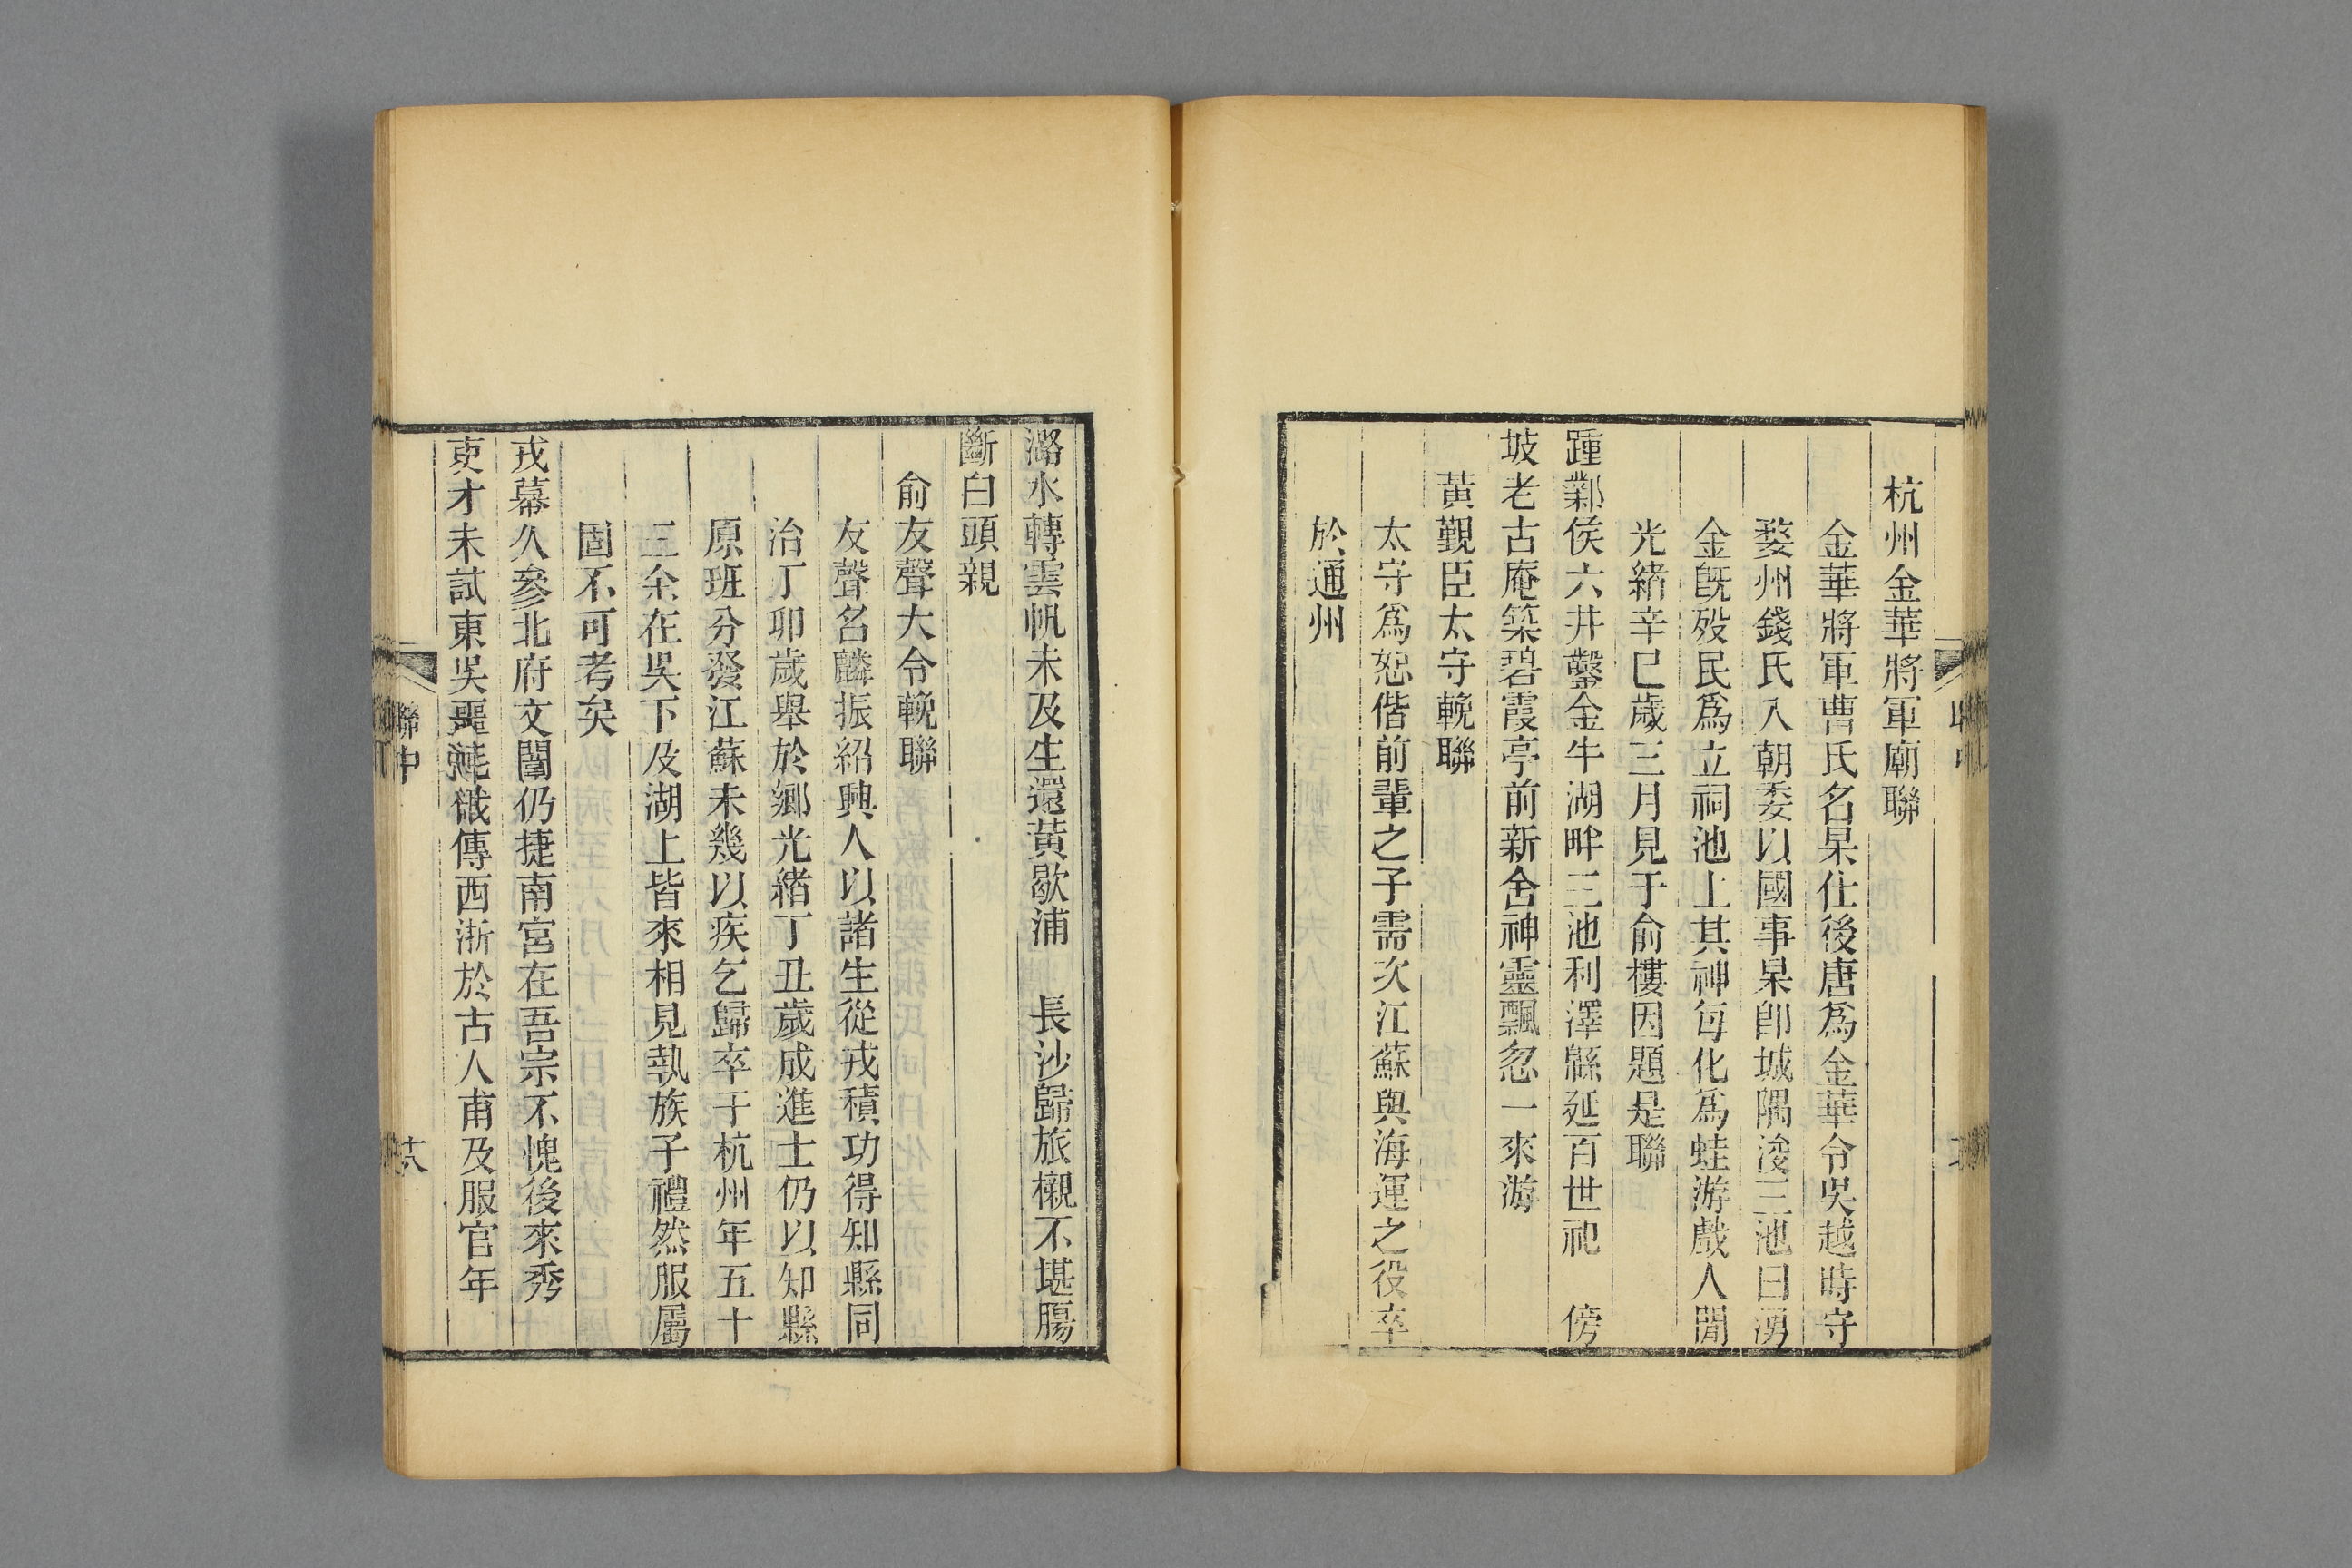 杭州金華將軍廟聯
金華將軍曹氏名杲仕後唐爲金華令吳越時守
婺州錢氏入朝委以國事杲卽城隅浚三池曰湧
金旣歿民爲立祠池上其神每化爲蛙游戲人閒
光緒辛巳歲三月見于俞樓因題是聯
踵鄴侯六井鑿金牛湖畔三池利澤緜延百世祀　傍
坡老古庵築碧霞亭前新舍神靈飄忽一來游
黃觐臣太守輓聯
太守爲恕偕前輩之子需次江蘇與海運之役卒
於通州
潞水轉雲帆未及生還黃歇浦　長沙歸旅櫬不堪腸
斷白頭親
俞友聲大令輓聯
友聲名麟振紹興人以諸生從戎積功得知縣同
治丁卯歲舉於鄉光緒丁丑歲成進士仍以知縣
原班分發江蘇未幾以疾乞歸卒于杭州年五十
三余在吳下及湖上皆來相見執族子禮然服屬
固不可考矣
戎幕久參北府文闈仍捷南宮在吾宗不愧後來秀
吏才未試東吳噩耗俄傳西浙於古人甫及服官年
聯中